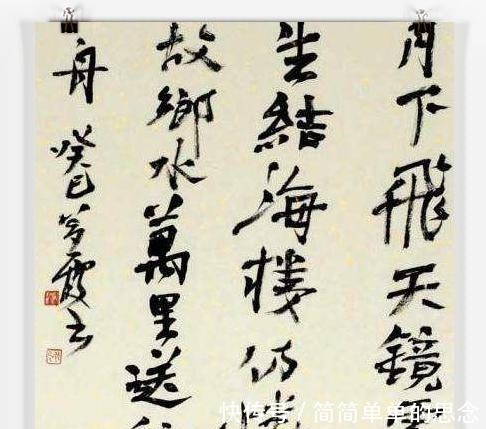 月下飛天鏡
生結海樓仍憐
故鄉水萬里送行
舟 癸巳 霞书
快传号 / 简简单单的思念